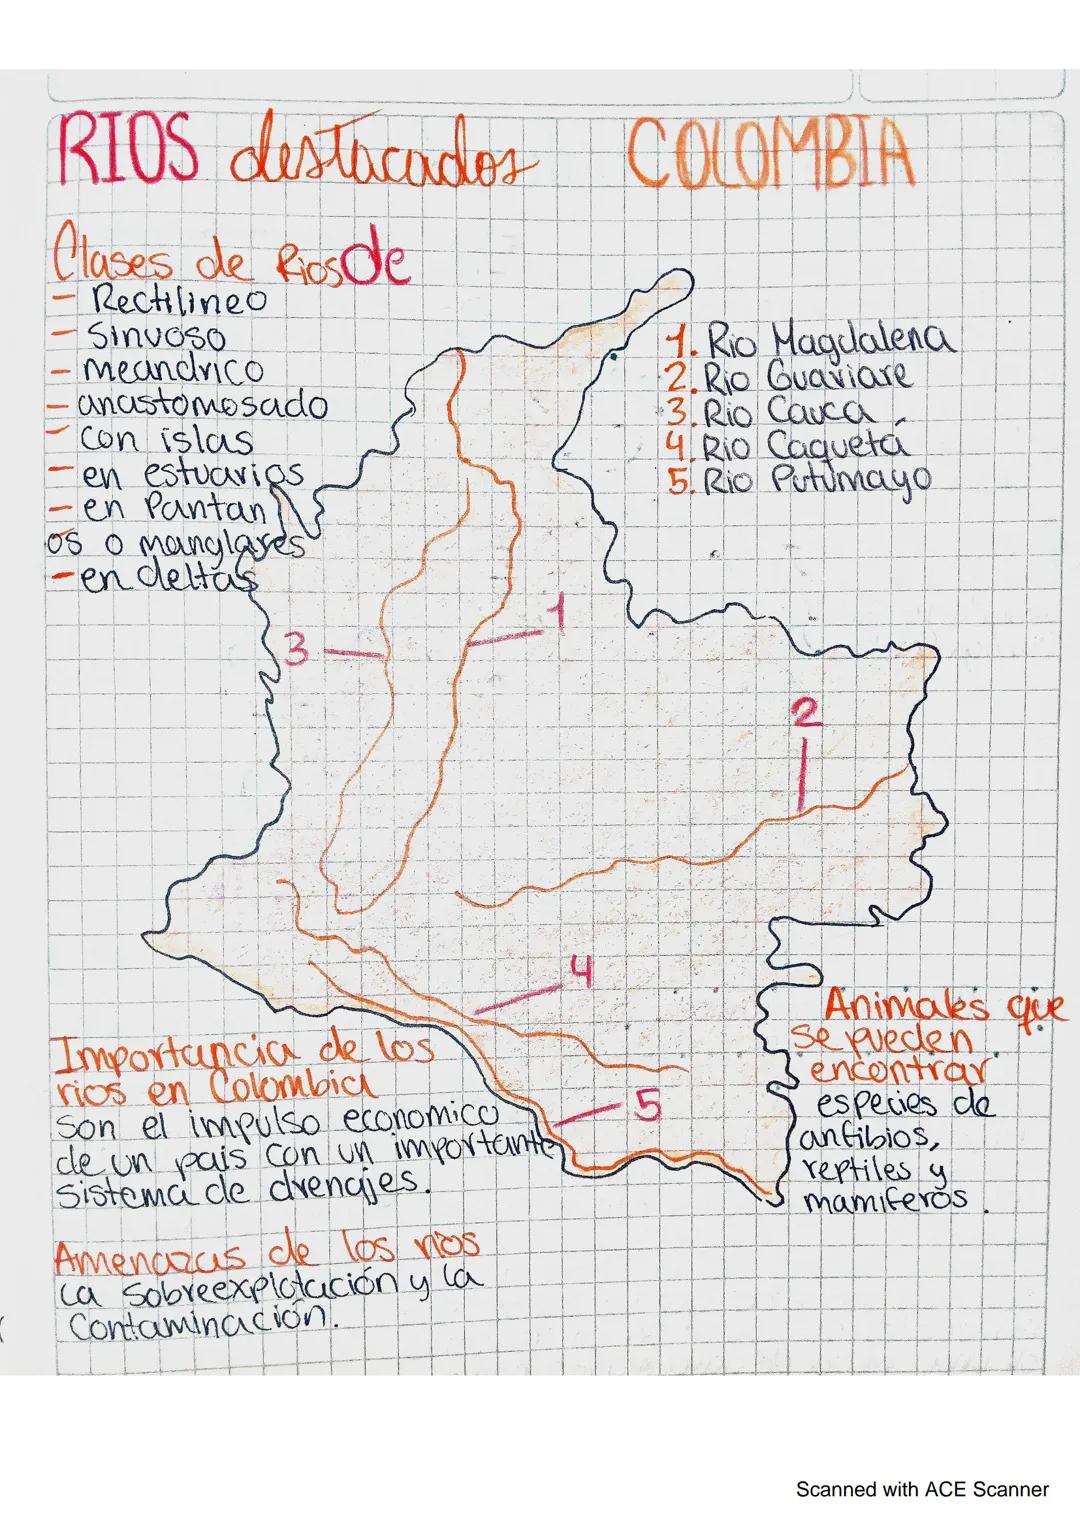 RIOS destacados COLOMBIA
Clases de Rios de
- Rectilineo
- Sinuoso
- meandrico
- anastomosado
- con islas
- en estuarios
- en Pantan
os o manglares
- en deltas
1. Rio Magdalena
2. Rio Guaviare
3. Rio Cauca
4. Rio Caquetá
5. Rio Putumayo
1
3
2
4
5
Importancia de los
rios en Colombia
son el impulso economico
de un pais con un importante
sistema de drenajes.
Amenazas de los rios
La sobreexplotación y la
Contaminación.
Animales que
se pueden
encontrar
especies de
anfibios,
reptiles y
mamiferos.
Scanned with ACE Scanner